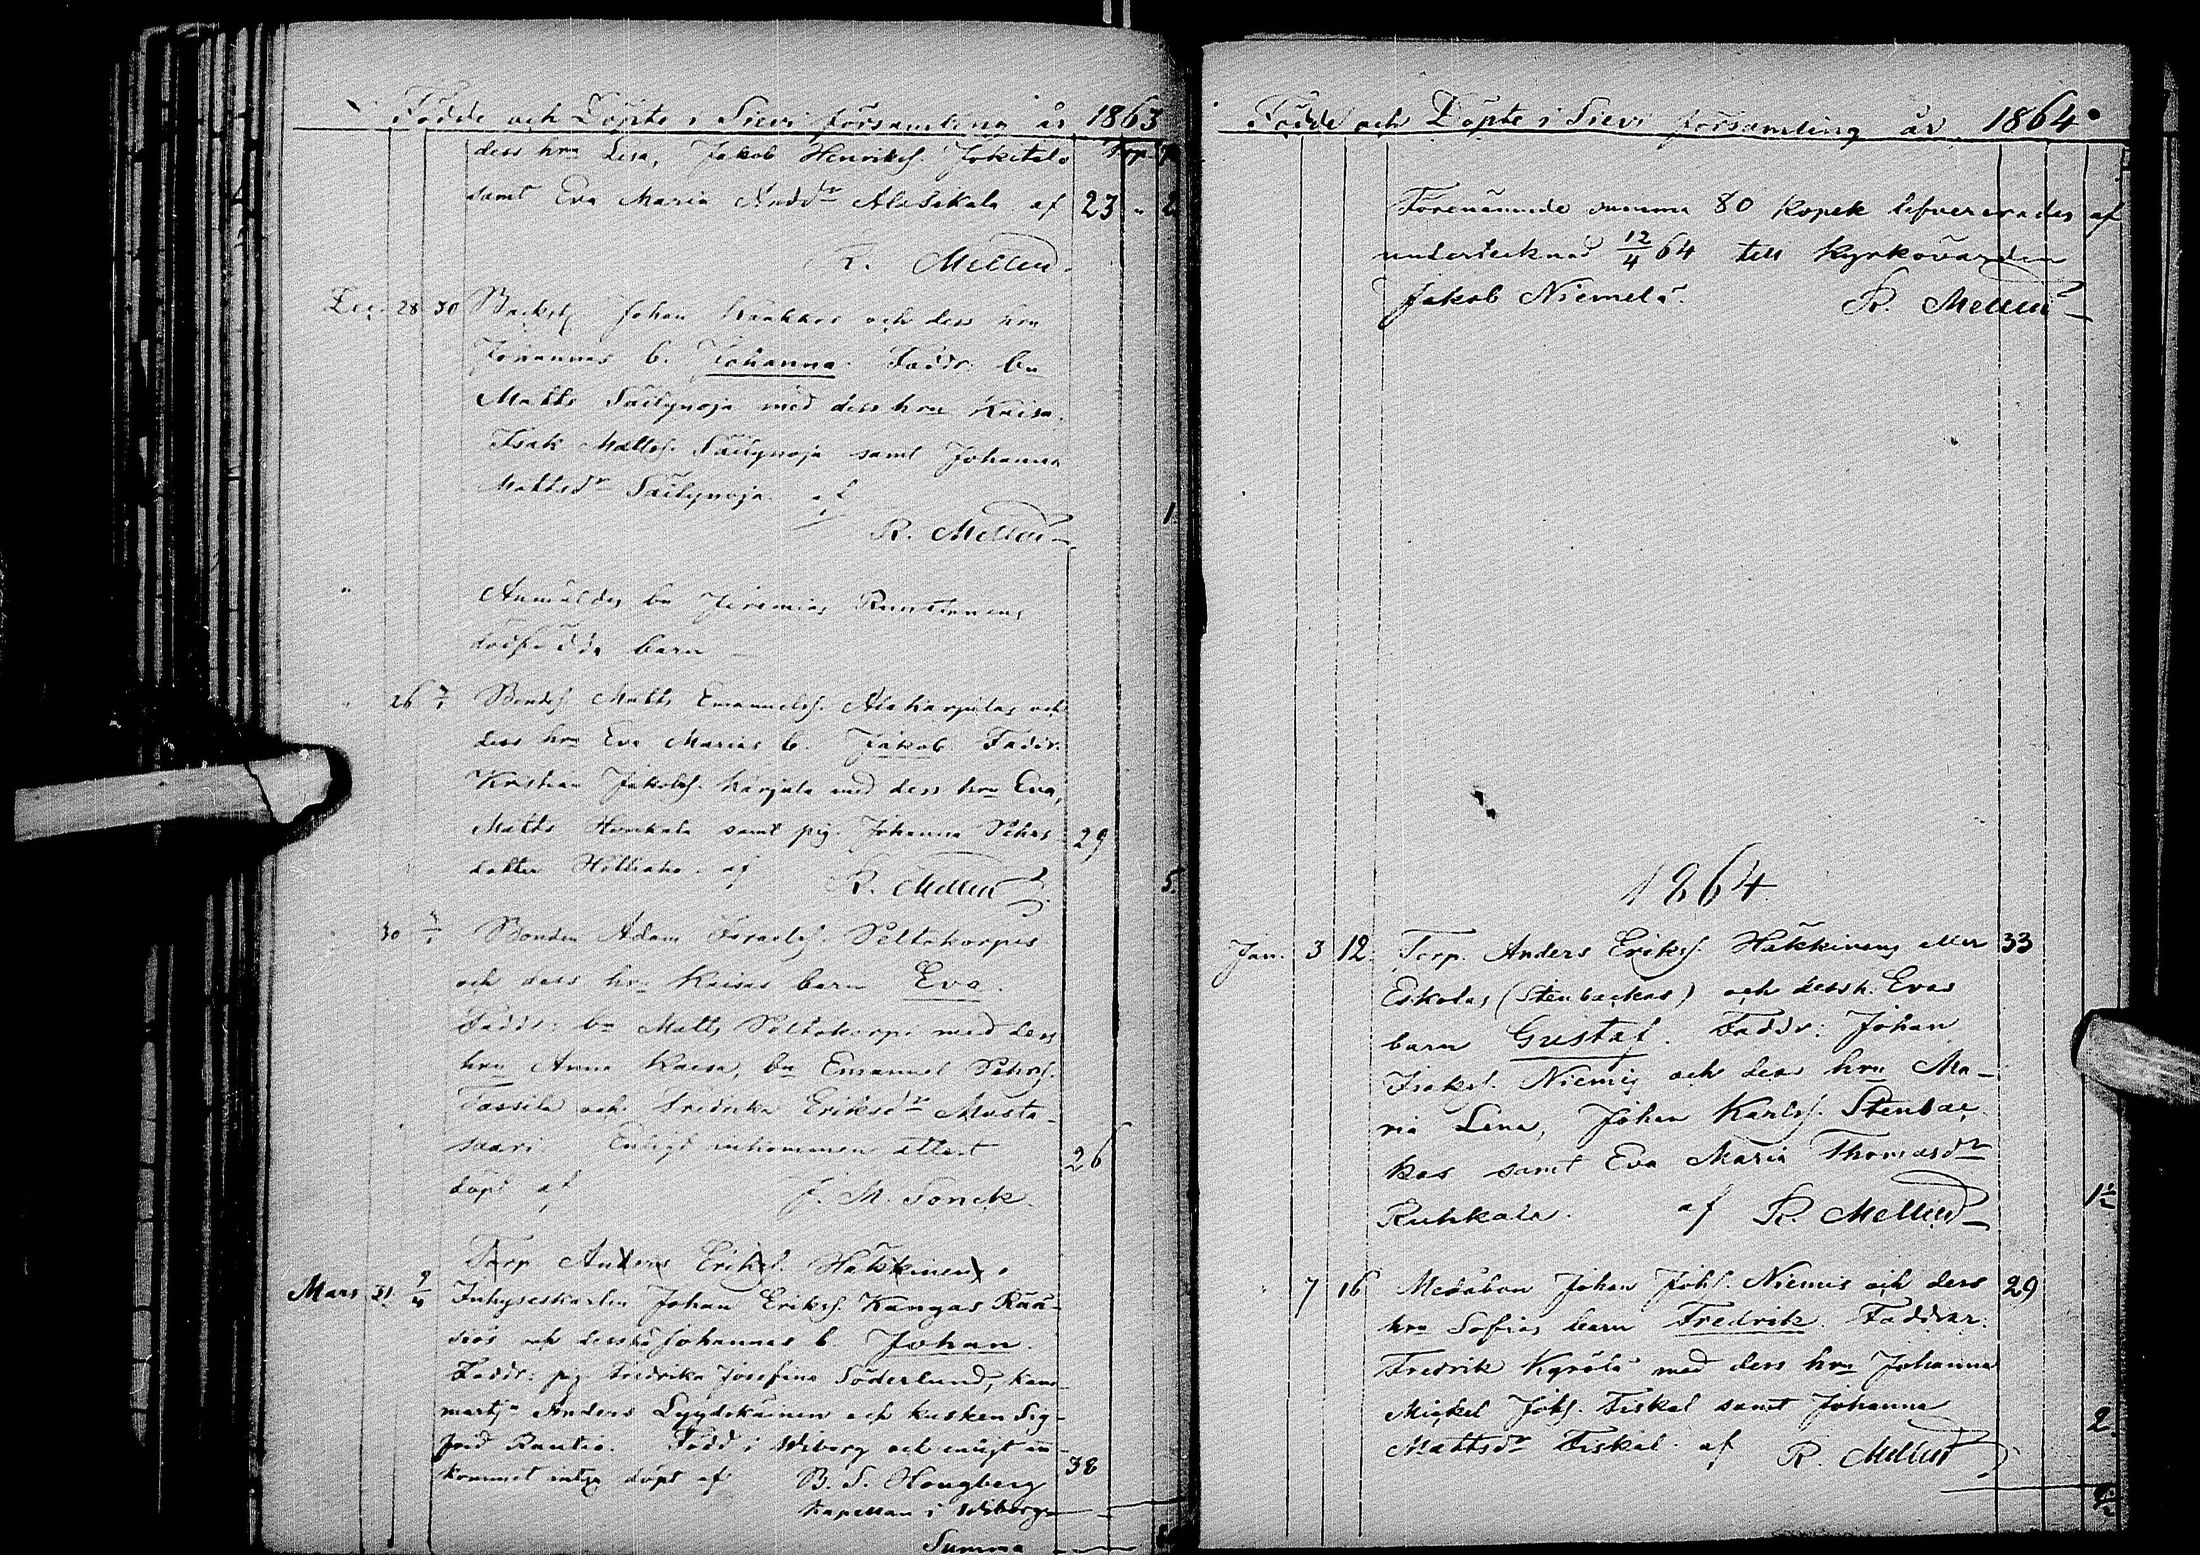 Födde och Döpte i Sievi församling år 1863
dess hru Lisa, Jakob Henrikss. Jokitalo
samt Eva Maria Andd:r Alasikala af 23 " 2
R. Mellin
Dec. 28 30 Backst. Johan och dess hru
Johannas b. Johanna. Faddr: bn
Matts Säilynoja med dess hru Kaisa,
Isak Matts. Säilynoja samt Johanna
Mattsd:r Säilynoja. af 1
R. Mellin
" Anmäldes bn Jeremias Runtinens
dödfödda barn —
" 26 Bondes. Matts Emanuelss. Alakarjulas och
dess hru Eva Marias b. Jakob. Faddr.
Kristian Jakobss. Karjula med dess hru Eva,
Matts Honkala samt pig. Johanna Pehrs 29
dotter af R. Mellin 5
" 30 Bonden Adam Israelss. Peltokorpis
och dess hru Kaisas barn Eva.
Faddr: bn Matts Peltokorpi med dess
hru Anna Kaisa, bn Emanuel Pehrs.
Tassila och Fredrika Eriksd:r Musta-
saari. Enligt inkommen attest 26
döpt af J. M. Sonck.
Torp Anders Eriks. Häkkinens
Mars 31 9/4 Inhyseskarlen Johan Erikss. Kangas Rää-
och dess h. Johannas b. Johan.
Faddr: pig. Fredrika Josefina Söderlund,
Anders Lyydikäinen och kusken Sig-
frid Rautio. Född i Wiborg och enligt in-
kommet intyg döpt af B. S. Hougberg 38
Kapellan i Wiborg
Summa
Födde och Döpte i Sievi församling år 1864
Förenämnde summa 80 kopek lefvererades af
undertecknad 12/4 64 till Kyrkovärden
Jakob Niemelä. R. Mellin
1864
Jan. 3 12. Torp. Anders Erikss. Häkkinens eller 33
Eskolas (Stenbackas) och dess h. Evas
barn Gustaf. Faddr: Johan
Isaks. Niemis och dess hru Ma-
ria Lena, Johan Karlss. Stenbac
kas samt Eva Maria Thomasd:r
Ruhkala. af R. Mellin 1 1/2
" 7 16 Medåbon Johan Johs. Niemis och dess 29
hru Sofias barn Fredrik. Faddrar:
Fredrik Kyrölä med dess hru Johanna
Mickel Johs. Fiskal samt Johanna
Mattsd:r Fiskal. af R. Mellin 2